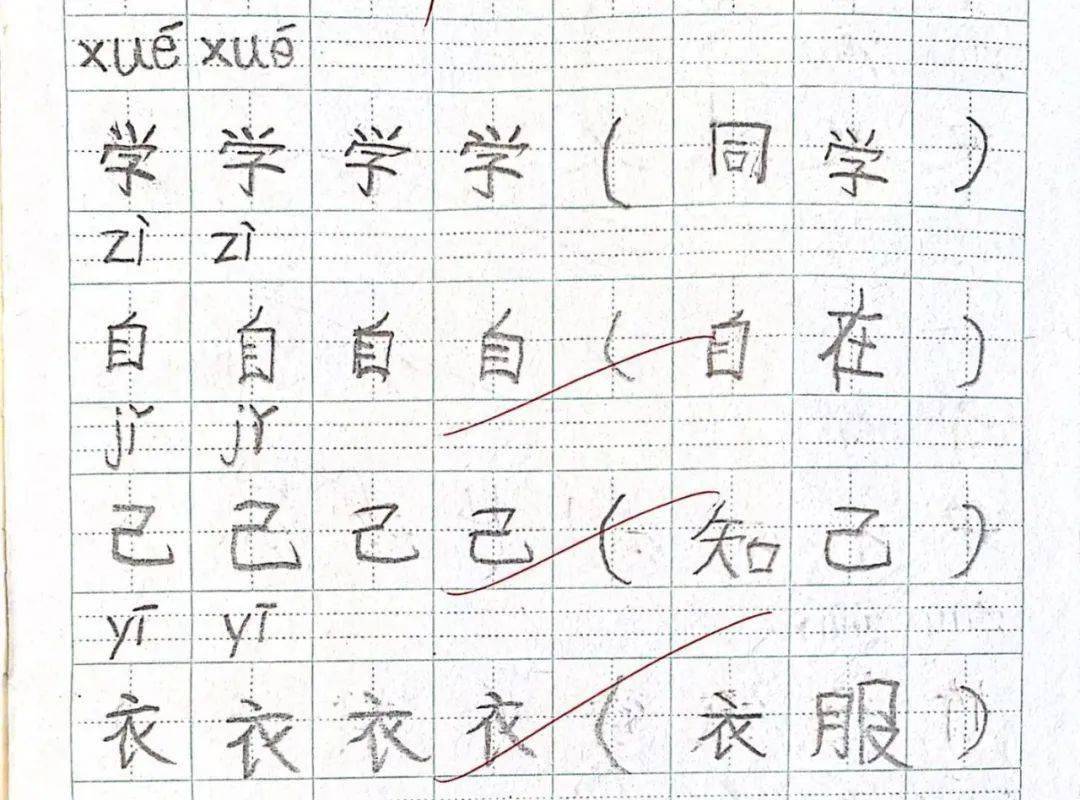 xué xué
学 学 学 学 ( 同 学 )
zì zì
自 自 自 自 ( 自 在 )
jǐ jǐ
己 己 己 己 ( 知 己 )
yī yī
衣 衣 衣 衣 ( 衣 服 )